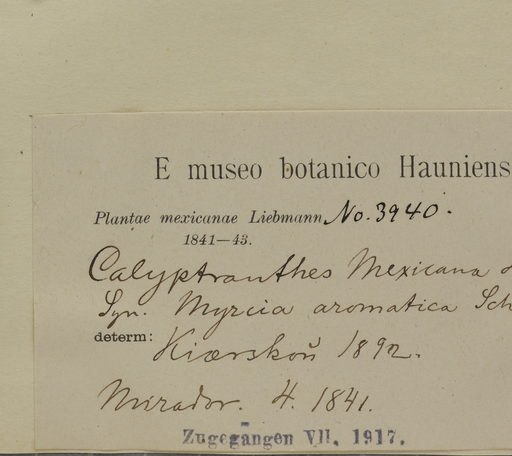 E museo botanico Hauniens
Plantae mexicanae Liebmann No. 3940.
1841—43.
Calyptranthes Mexicana
Syn. Myrcia aromatica Sch
determ: Kiærskoŭ 1892.
Mirador. 4. 1841.
Zugegangen VII. 1917.